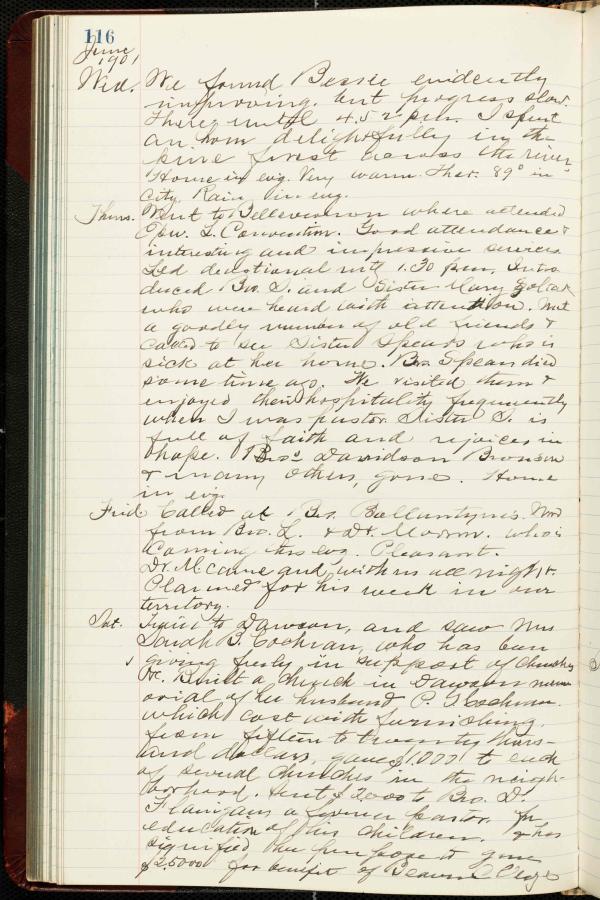 116
June
1901
Wed. We found Bessie evidently
improving, but progress slow.
There until 4.52 p.m. I spent
an hour delightfully in the
pine forest across the river
Home in evg. Very warm. Ther. 89° in
City. Rain in evg.
Thurs. Went to Bellevernon where attended
Epw. L. Convention. Good attendance &
interesting and impressive services
Led devotional mtg 1.30 p.m. Intro
duced Bro. S. and Sister Mary
who were heard with attention. Met
a goodly number of old friends &
called to see Sister Spears who is
sick at her home. Bro. Spears died
some time ago. We visited them &
enjoyed their hospitality frequently
when I was pastor. Sister S. is
full of faith and rejoices in
hope. Bros Davidson Bronson
& many others, gone. Home
in evg.
Frid. Called at Bro. Ballantyne's. Word
from Bro. L. & Dr. who is
Coming this evg. Pleasant.
Dr. M. came and with us all night.
Planned for his week in our
territory.
Sat. to Dawson, and saw Mrs
Sarah B. Cochran, who has been
giving freely in support of churches
Built a church in Dawson mem
orial of her husband P. G. Cochran.
which cost with furnishing.
from fifteen to twenty thous-
and dollars, gave $1,000 to each
of several churches in the neigh-
borhood. Sent $2,000 to Bro. D.
Flanigan a former pastor. for
education of his children. & has
signified her purpose to give
$25000 for benefit of Beaver Clge